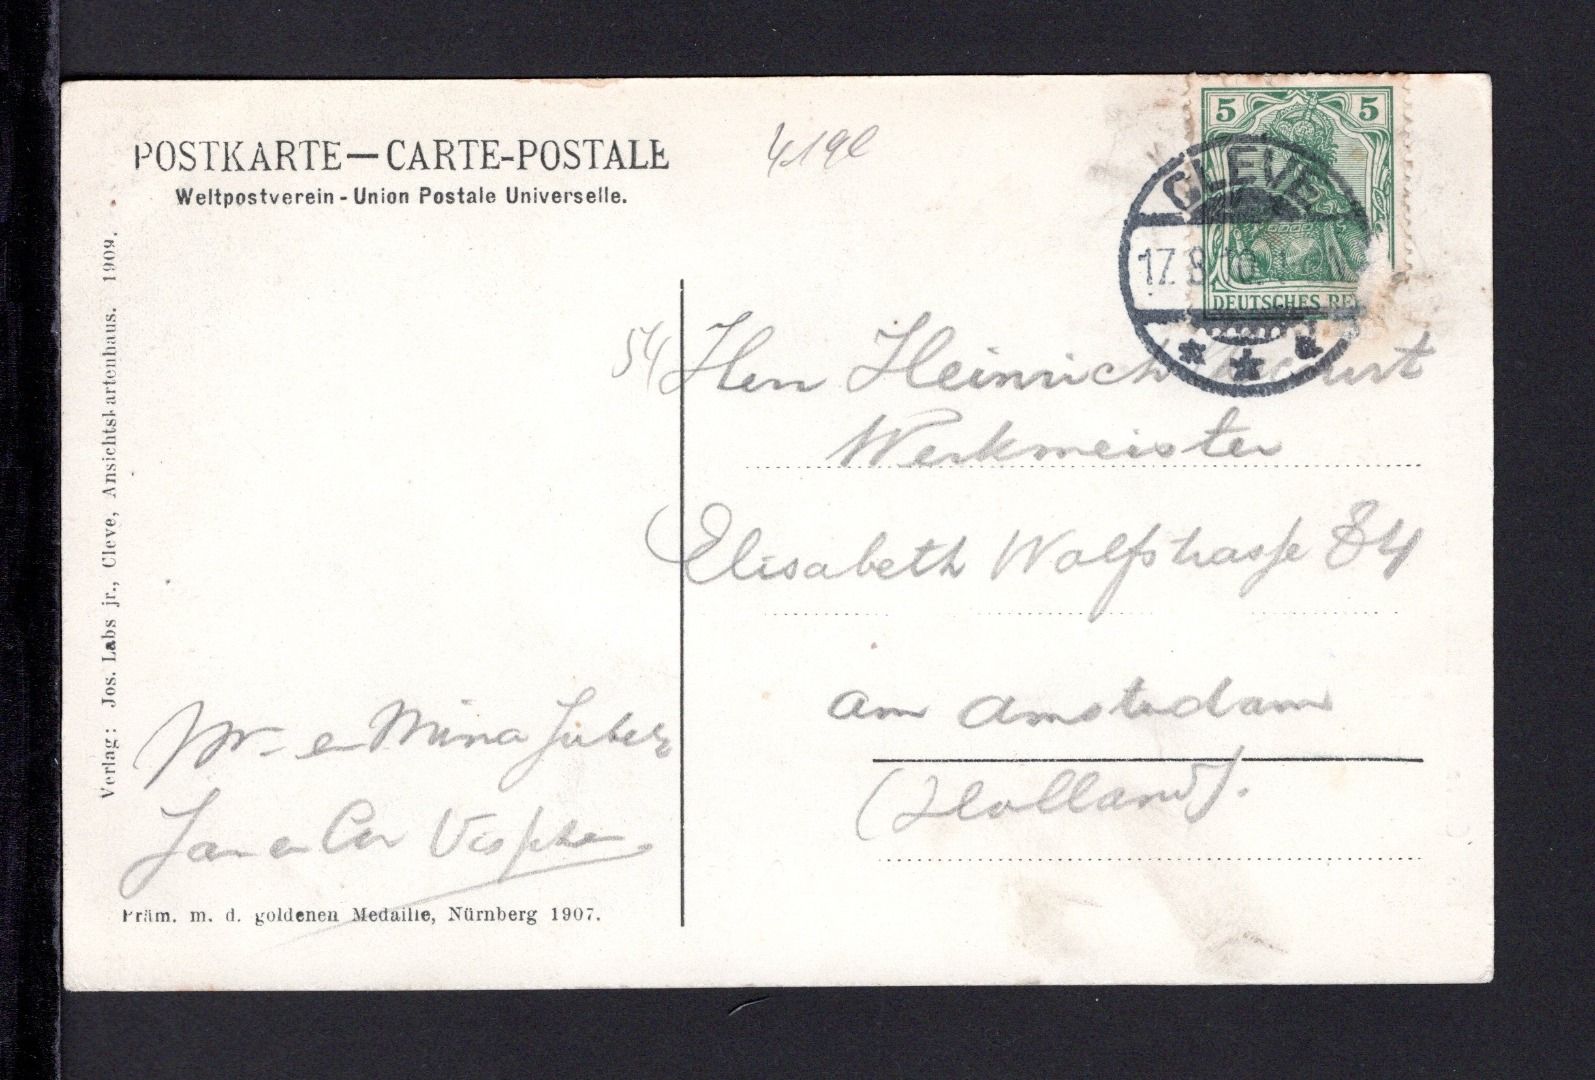 POSTKARTE — CARTE-POSTALE
Weltpostverein - Union Postale Universelle.
Verlag: Jos. Labs jr., Cleve, Ansichtskartenhaus. 1909.
5 5
DEUTSCHES RE
CLEVE
17.8.10.
* * a.
54
Herrn Heinrich
Werkmeister
Elisabeth Wolfstrasse 84
am Amsterdam
(Holland).
Mr e Mina
Jan en Cor
Präm. m. d. goldenen Medaille, Nürnberg 1907.